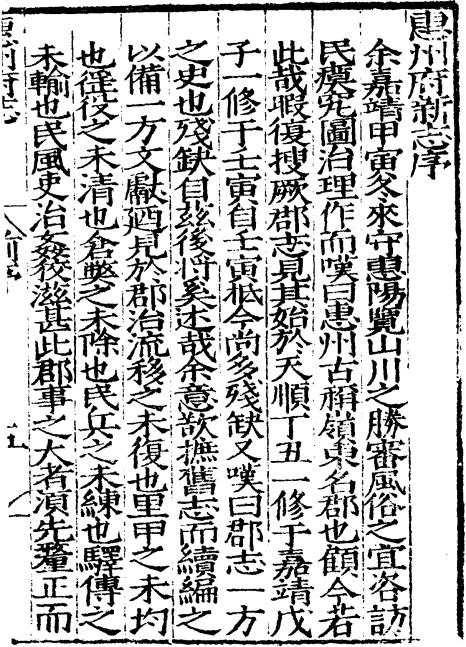 惠州府新志序
余嘉靖甲寅冬來守惠陽覽山川之勝審風俗之宜咨訪
民瘼究圖治理作而嘆曰惠州古稱嶺東名郡也顧今若
此哉暇復搜厥郡志見其始於天順丁丑一修于嘉靖戊
子一修于壬寅自壬寅抵今尚多殘缺又嘆曰郡志一方
之史也殘缺自玆後將奚述哉余意欲摭舊志而續編之
以備一方文獻廼見於郡治流移之未復也里甲之未均
也徭役之未清也倉弊之未除也民兵之未練也驛傳之
未輸也民風吏治姦滋甚此郡事之大者湏先釐正而
惠州府志